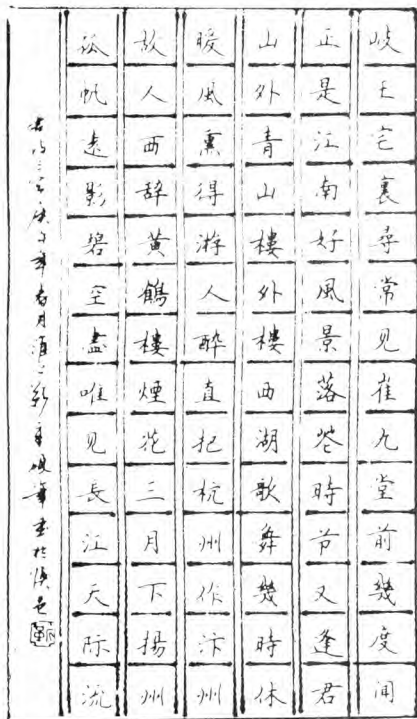 岐王宅裏尋常見崔九堂前幾度闻
正是江南好風景落花時节又逢君
山外青山樓外樓西湖歌舞幾時休
暖風熏得游人醉直把杭州作汴州
故人西辞黄鶴樓煙花三月下揚州
孤帆遠影碧空盡唯见長江天际流
古诗三首庚午年春月